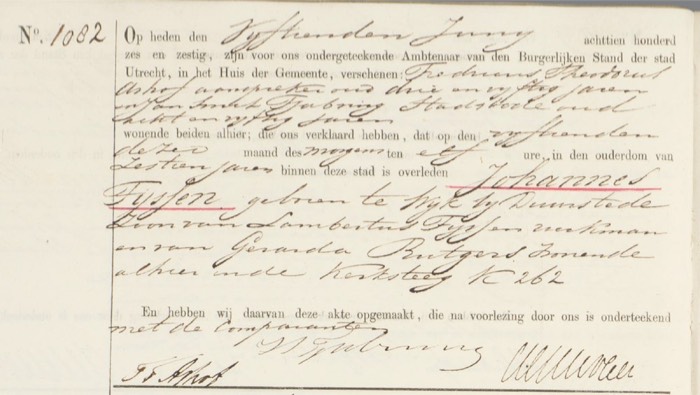 No. 1082 Op heden den Vyftienden Juny achttien honderd
zes en zestig, zijn voor ons ondergeteekende Ambtenaar van den Burgerlijken Stand der stad
Utrecht, in het Huis der Gemeente, verschenen: Fredrikus Theodorus
Ashof aanspreker oud drie en vyftig jaren
en Jan Smit Tjabring Stadsbode oud
acht en vyftig jaren
wonende beiden alhier; die ons verklaard hebben, dat op den vyftienden
dezer maand des morgens ten elf ure, in den ouderdom van
Zestien jaren binnen deze stad is overleden Johannes
Fyssen geboren te Wyk by Duurstede
Zoon van Lambertus Fyssen werkman
en van Gerarda Rutgers wonende
alhier in de Kerksteeg K 262
En hebben wij daarvan deze akte opgemaakt, die na voorlezing door ons is onderteekend
met de Comparanten
Tjabring
Ashof